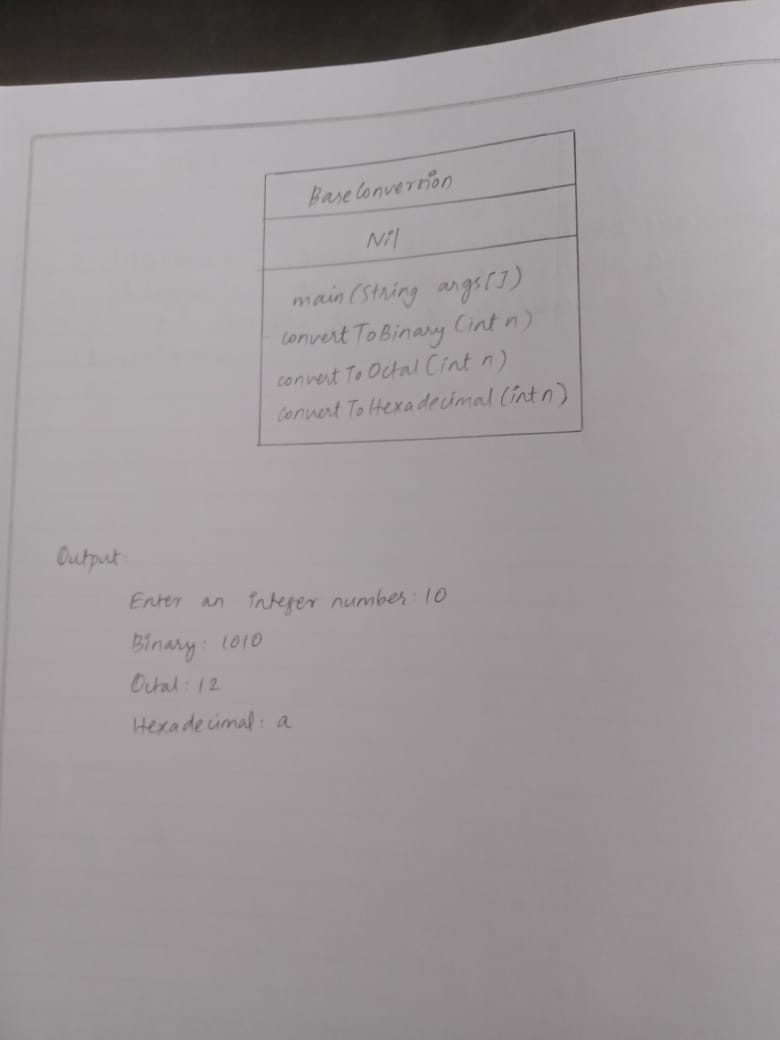 BaseConversion
Nil
main(String args[])
convertToBinary(int n)
convertToOctal(int n)
convertToHexadecimal(int n)
Output:
Enter an integer number: 10
Binary: 1010
Octal: 12
Hexadecimal: a